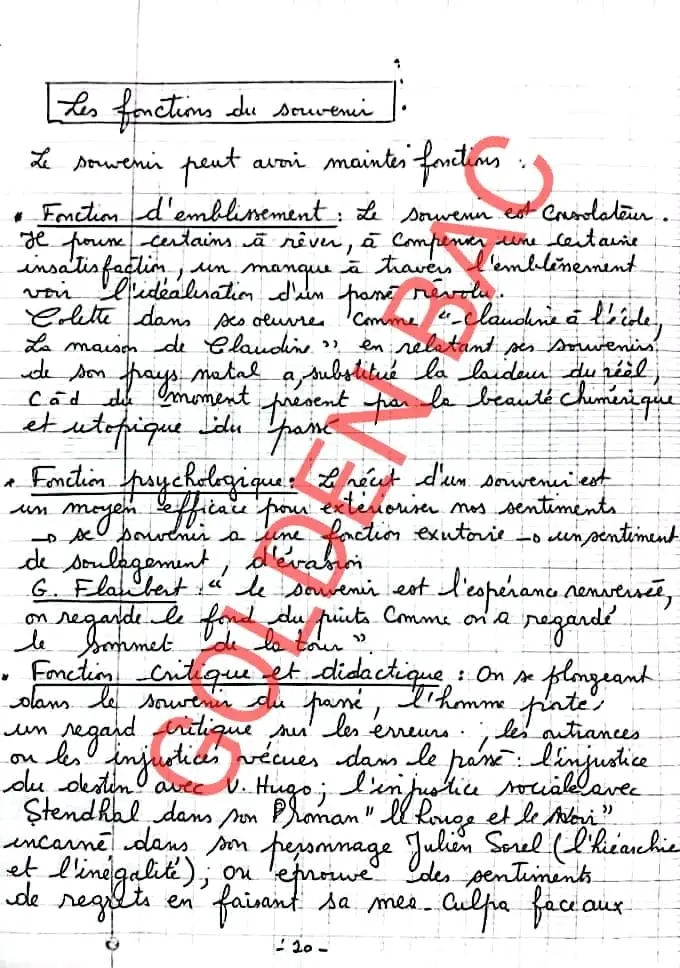 Les fonctions du souvenir
Le souvenir peut avoir maintes fonctions :
• Fonction d'emblissement : Le souvenir est Consolateur.
Il pousse certains à rêver, à Compenser une certaine
insatisfaction, un manque à travers l'emblêmement
voir l'idéalisation d'un passé révolu.
Colette dans ses oeuvres comme "Claudine à l'école,
La maison de Claudine", en relatant ses souvenirs
de son pays natal a substitué la laideur du réel,
Càd du moment présent par la beauté chimérique
et utopique du passé
• Fonction psychologique : Le récit d'un souvenir est
un moyen efficace pour extérioriser nos sentiments
→ se souvenir a une fonction exutoire → un sentiment
de soulagement, d'évasion
G. Flaubert : "le souvenir est l'espérance renversée,
on regarde le fond du puits Comme on a regardé
le sommet de la tour"
• Fonction critique et didactique : On se plongeant
dans le souvenir du passé, l'homme porte
un regard critique sur les erreurs, les outrances
ou les injustices vécues dans le passé : l'injustice
du destin avec V. Hugo ; l'injustice sociale avec
Stendhal dans son Roman "le Rouge et le Noir"
incarné dans son personnage Julien Sorel (l'hiéarchie
et l'inégalité) ; ou éprouve des sentiments
de regrets en faisant sa mea-Culpa face aux
- 20 -
GOLDEN BAC